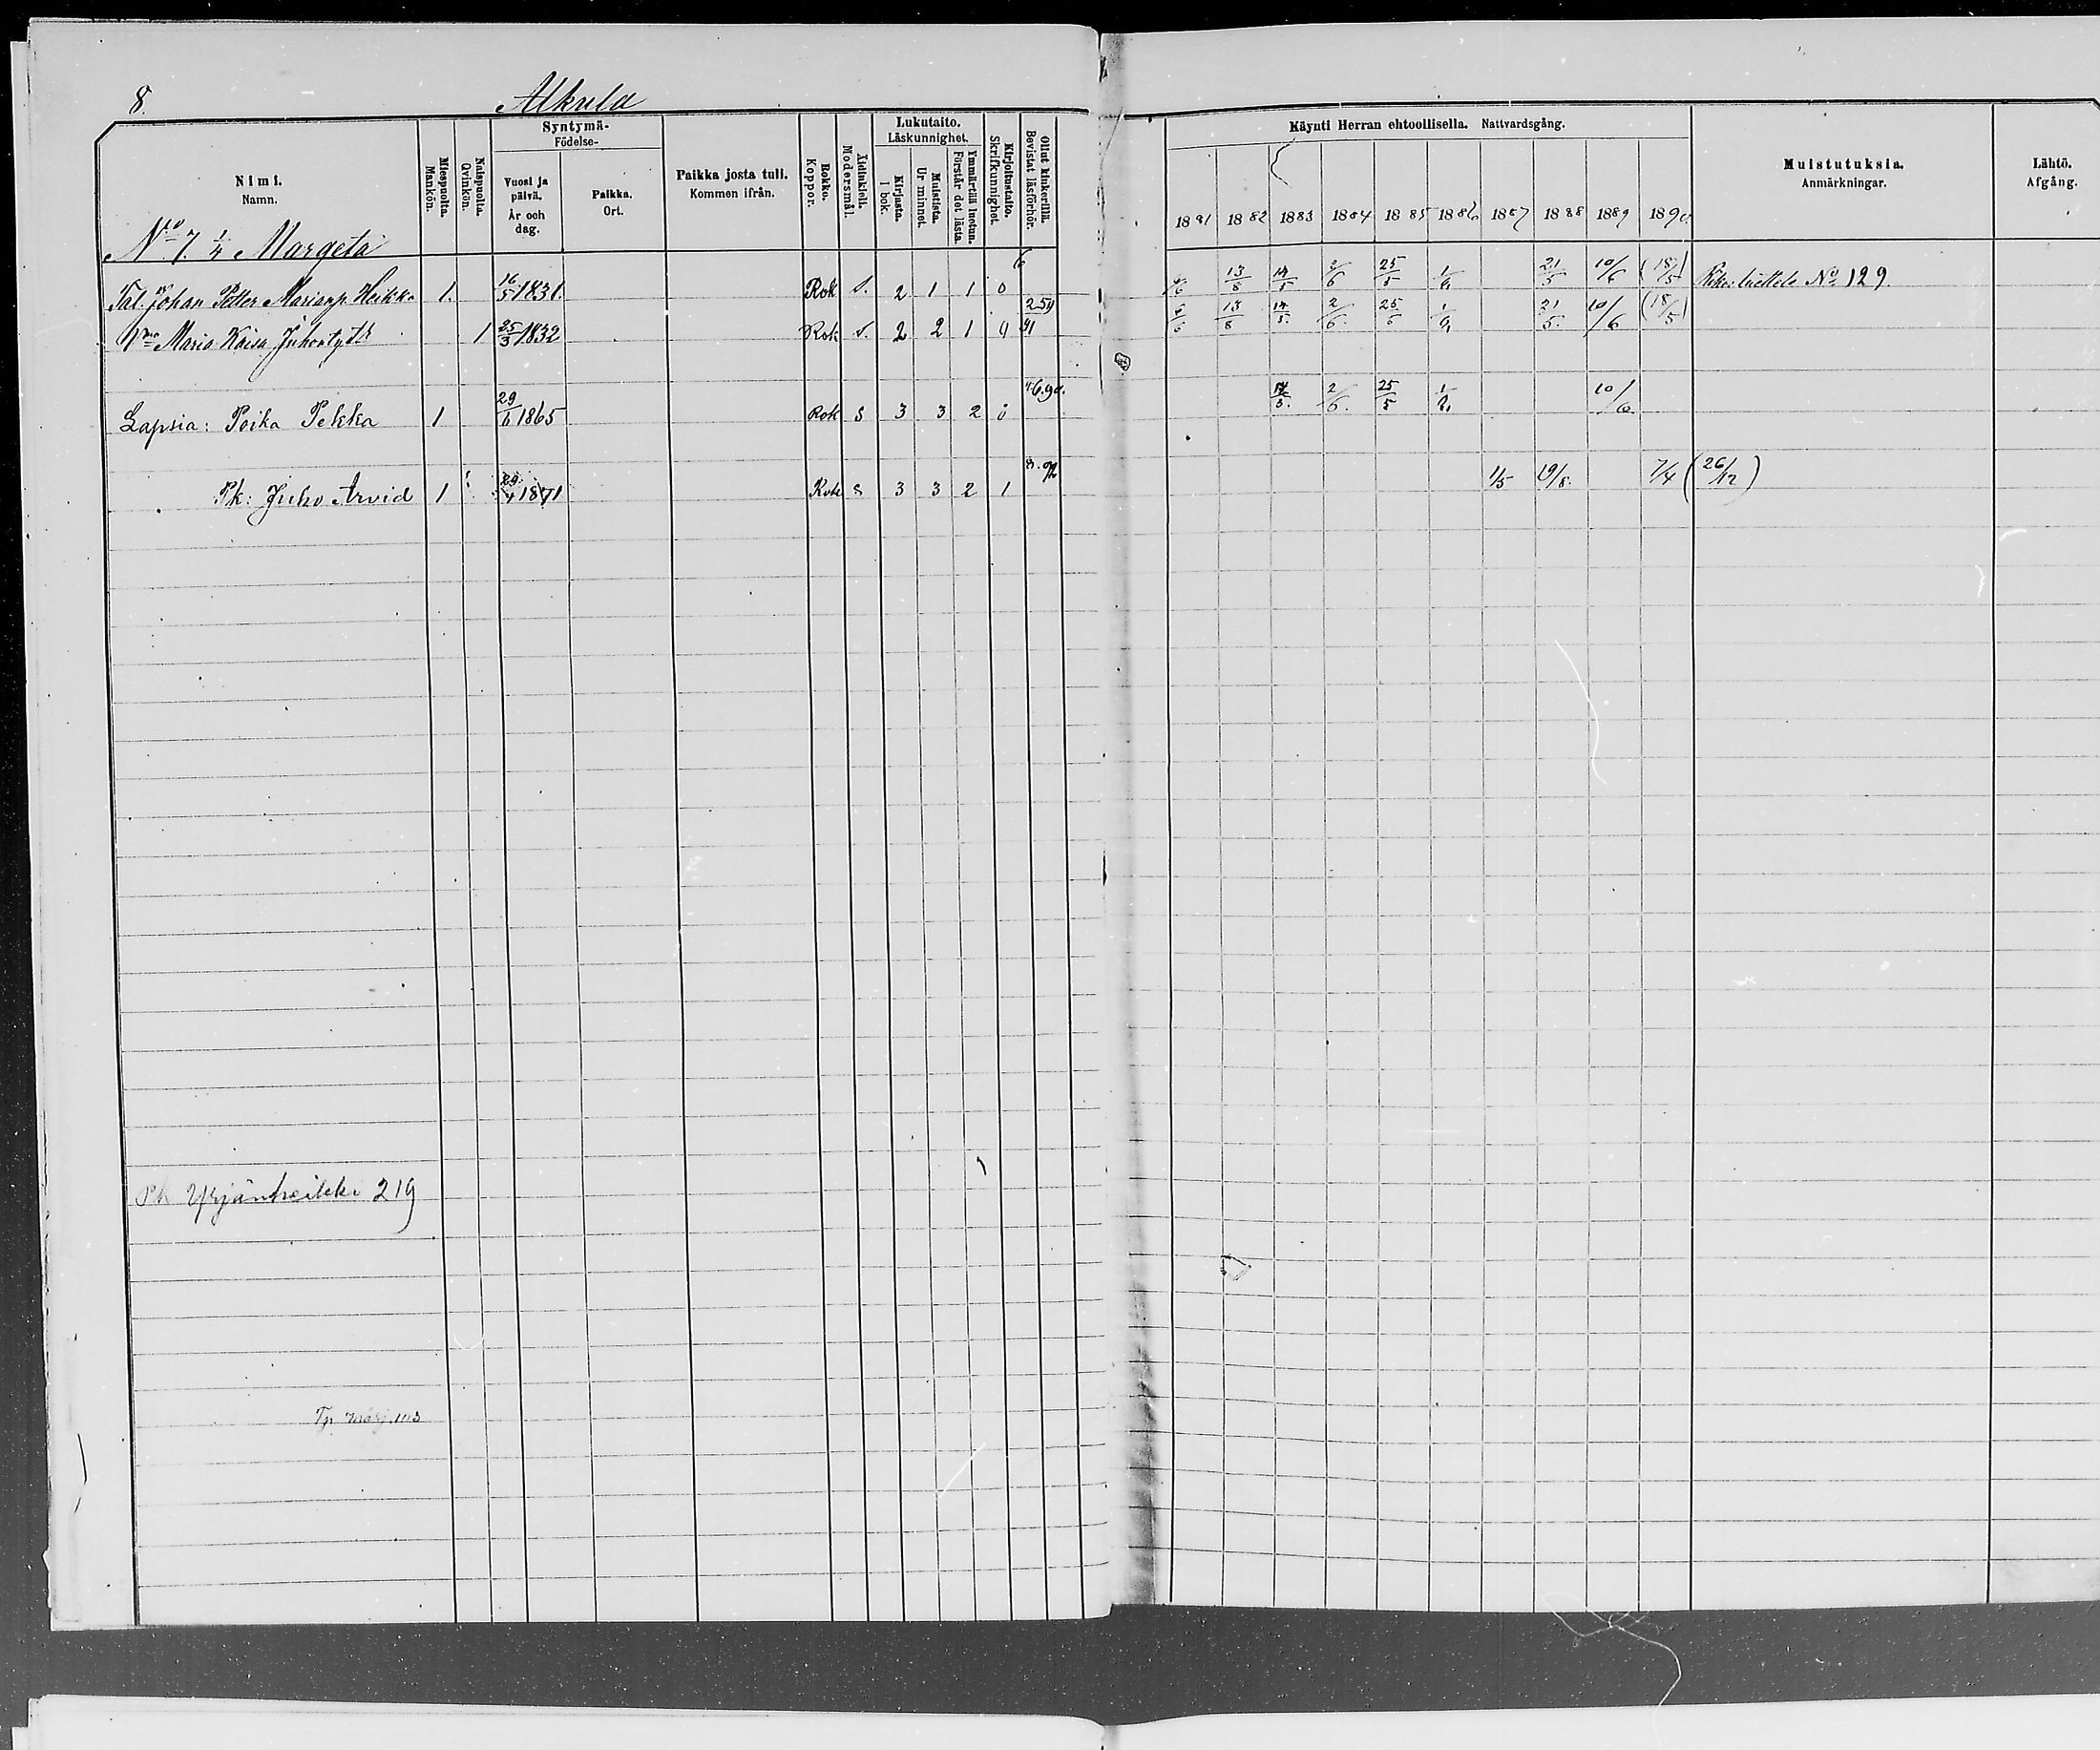 8. Alkula
Nimi. Namn.
Miespuolta. Mankön.
Naispuolta. Qvinkön.
Syntymä- Födelse-
Vuosi ja päivä. År och dag.
Paikka. Ort.
Paikka josta tuli. Kommen ifrån.
Rokko. Koppor.
Äidinkieli. Modersmål.
Lukutaito. Läskunnighet.
Kirjasta. I bok.
Muistista. Ur minnet.
Ymmärtää luetun. Förstår det lästa.
Kirjoitustaito. Skrifkunnighet.
Ollut kinkerillä. Bevistat läsförhör.
Käynti Herran ehtoollisella. Nattvardsgång.
1881 1882 1883 1884 1885 1886 1887 1888 1889 1890
Muistutuksia. Anmärkningar.
Lähtö. Afgång.
No 7. 1/4 Margeta
Tal. Johan Petter Marianp. Heikka 1. 16/5 1831. Rok S. 2 1 1 0 13/8 14/5 2/6 25/5 21/5 10/6 (18/5) No 129.
Vmo Maria Kaisa Juhontytär 1 25/3 1832 Rok S. 2 2 1 91 6/6 13/8 14/5. 2/6. 25/5 21/5. 10/6 (18/5)
Lapsia: Poika Pekka 1 29/6 1865 Rok S 3 3 2 0 2/6. 25/5 10/6
Pk: Juho Arvid 1 29/4 1871 Rok S 3 3 2 1 1/5 19/8. 7/4 (26/12)
Pk Yrjänheikki 219